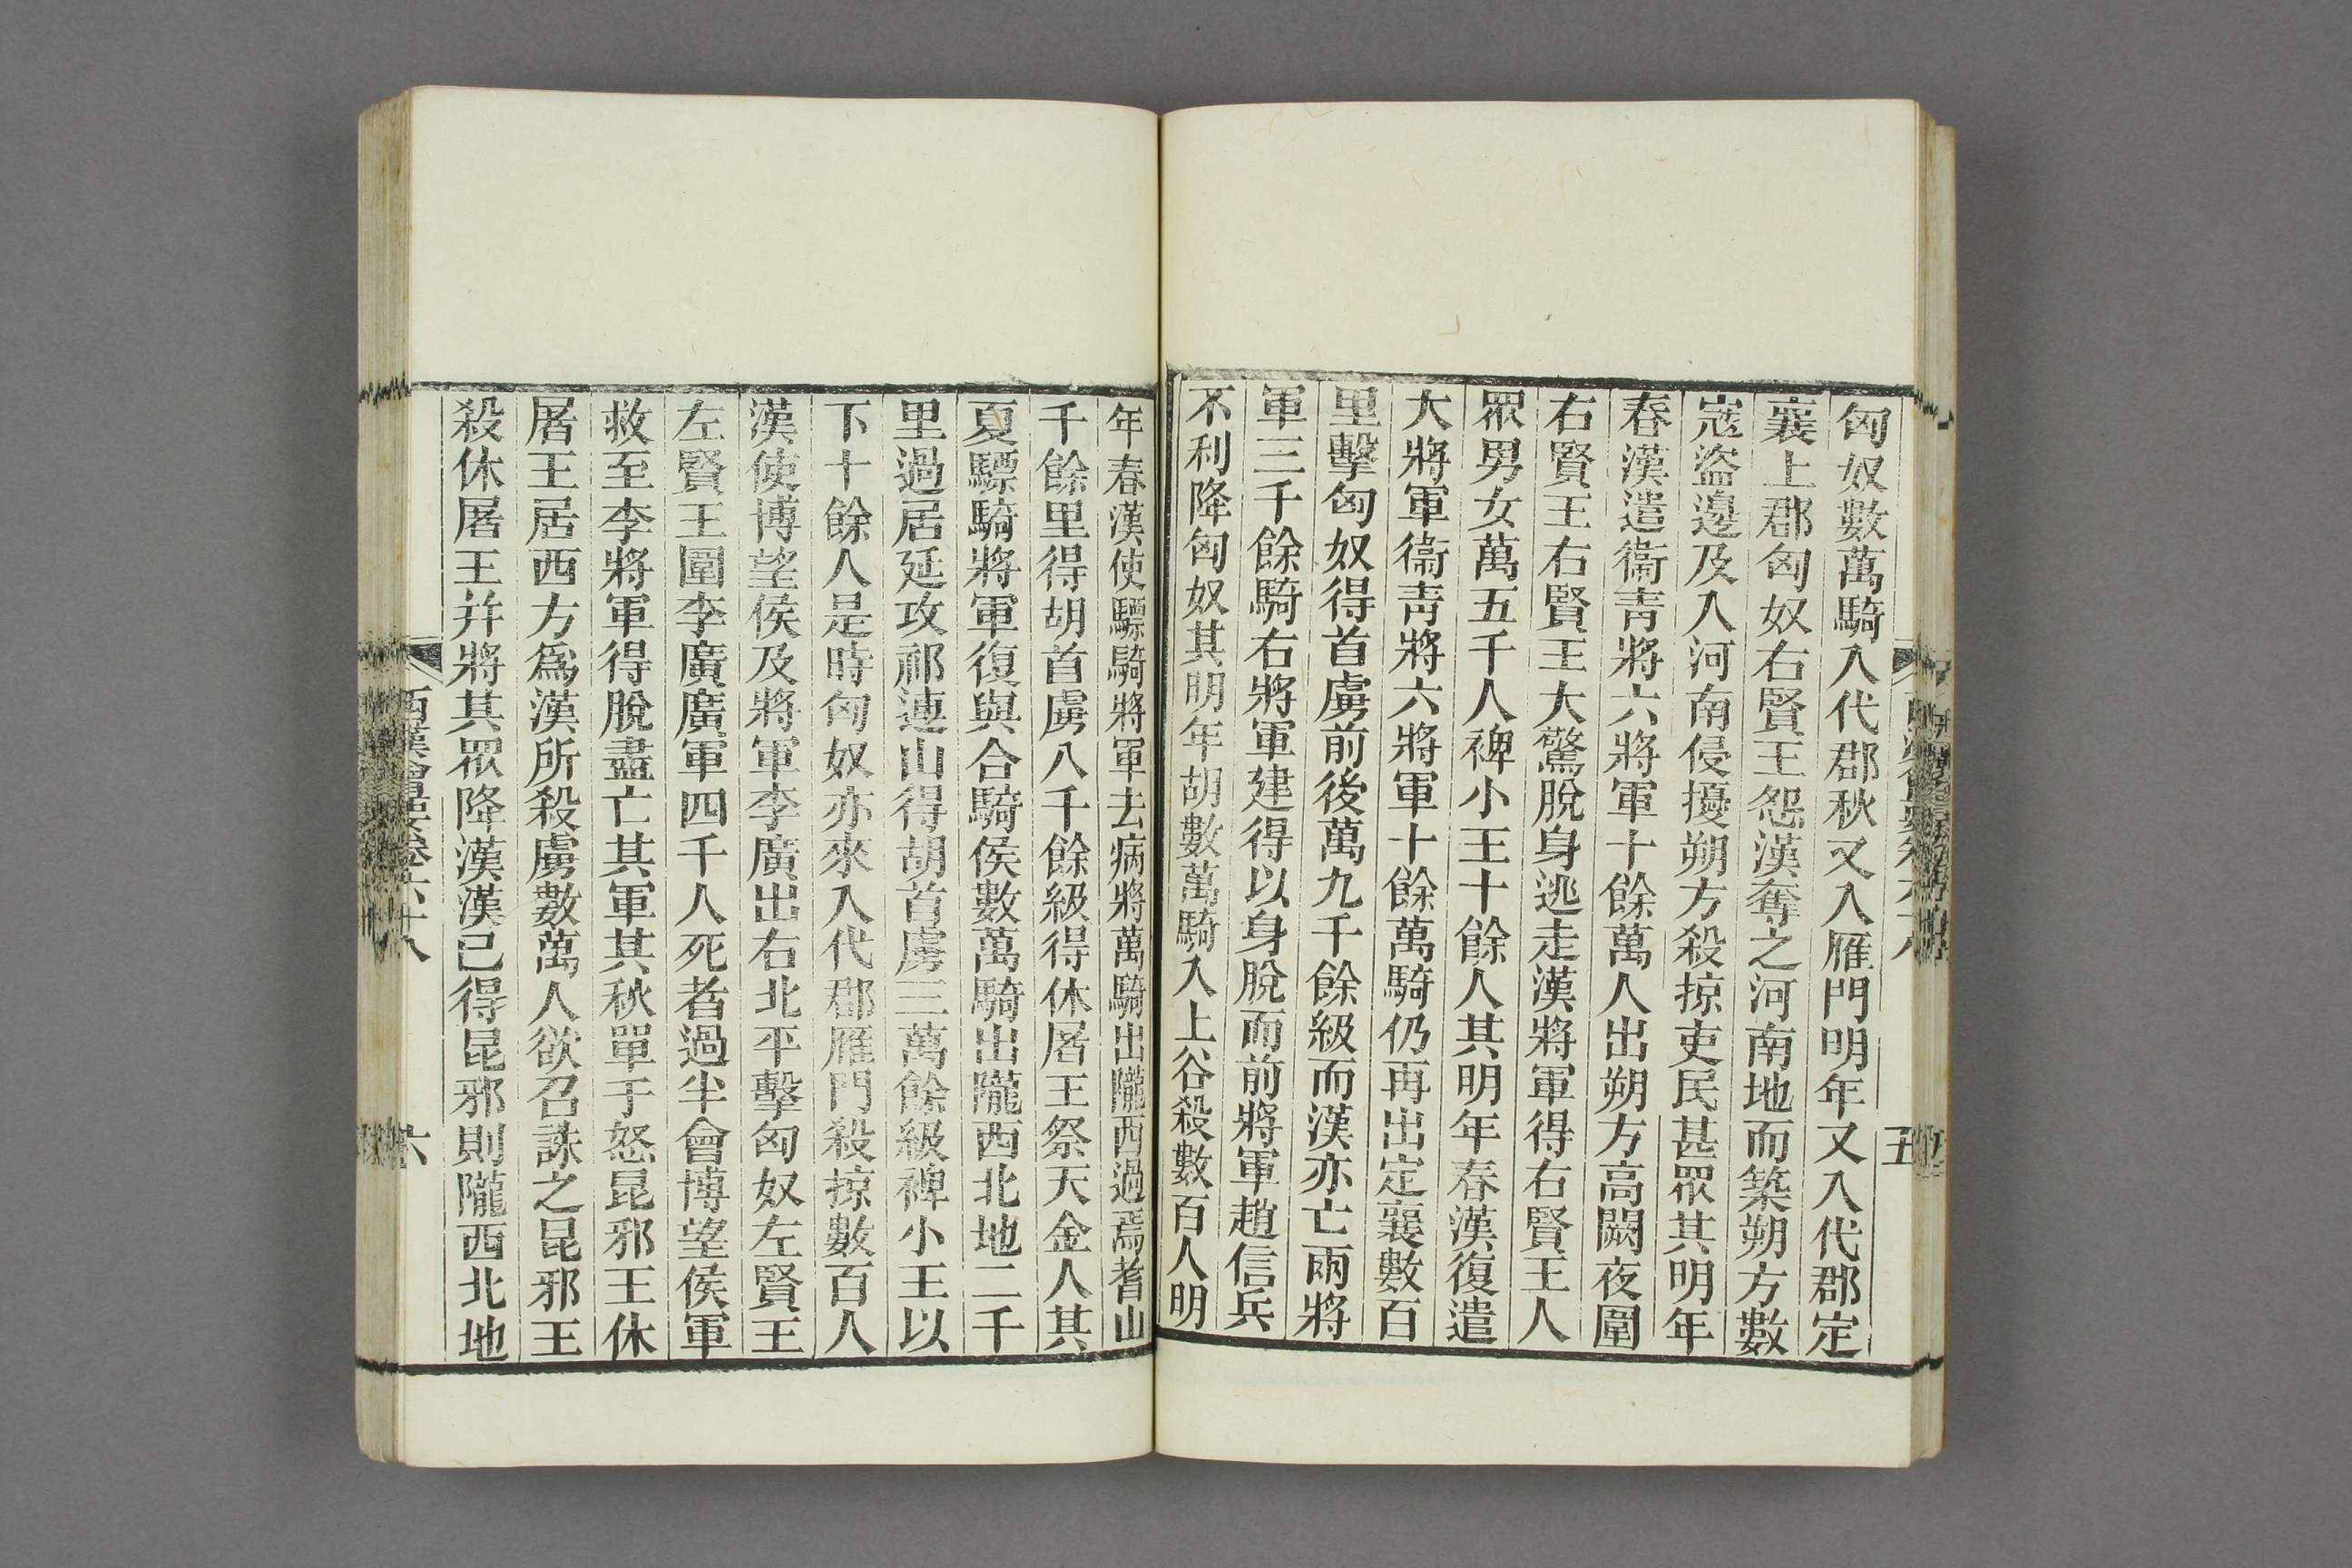 匈奴數萬騎入代郡秋又入雁門明年又入代郡定
襄上郡匈奴右賢王怨漢奪之河南地而築朔方數
寇盜邊及入河南侵擾朔方殺掠吏民甚眾其明年
春漢遣衞青將六將軍十餘萬人出朔方高闕夜圍
右賢王右賢王大驚脫身逃走漢將軍得右賢王人
眾男女萬五千人裨小王十餘人其明年春漢復遣
大將軍衞青將六將軍十餘萬騎仍再出定襄數百
里擊匈奴得首虜前後萬九千餘級而漢亦亡兩將
軍三千餘騎右將軍建得以身脫而前將軍趙信兵
不利降匈奴其明年胡數萬騎入上谷殺數百人明
五
年春漢使驃騎將軍去病將萬騎出隴西過焉耆山
千餘里得胡首虜八千餘級得休屠王祭天金人其
夏驃騎將軍復與合騎侯數萬騎出隴西北地二千
里過居延攻祁連山得胡首虜三萬餘級裨小王以
下十餘人是時匈奴亦來入代郡雁門殺掠數百人
漢使博望侯及將軍李廣出右北平擊匈奴左賢王
左賢王圍李廣廣軍四千人死者過半會博望侯軍
救至李將軍得脫盡亡其軍其秋單于怒昆邪王休
屠王居西方爲漢所殺虜數萬人欲召誅之昆邪王
殺休屠王并將其眾降漢漢已得昆邪則隴西北地
西漢會要卷六十八
六